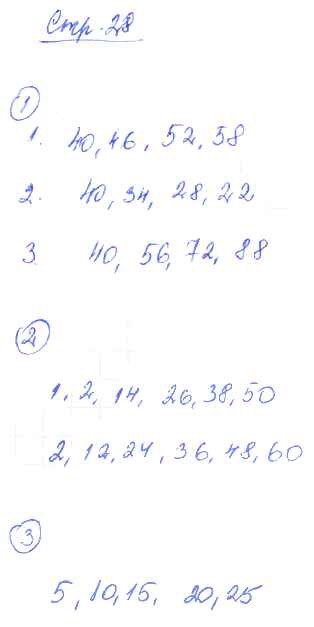 Стр. 28
1
1. 40, 46, 52, 58
2. 40, 34, 28, 22
3. 40, 56, 72, 88
2
1. 2, 14, 26, 38, 50
2, 12, 24, 36, 48, 60
3
5, 10, 15, 20, 25